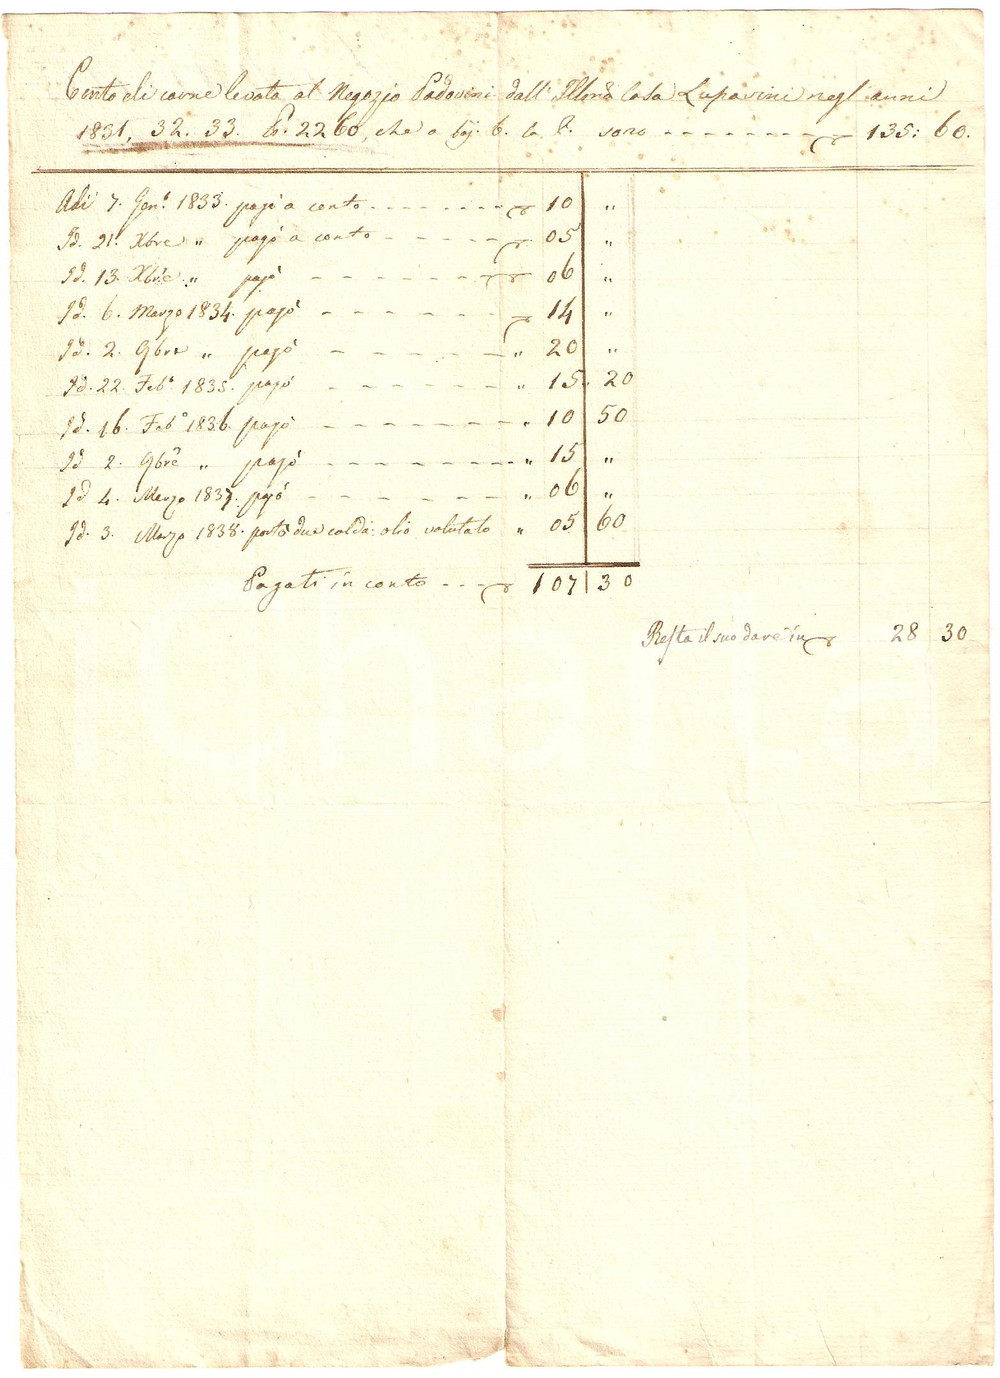 Conto di carne levata al Negozio Padovini dall' Illma Casa Lupavini negl' anni
1831, 32. 33. ℔. 2260, che a bj. 6. la ℔. sono - - - - - - - 135: 60.
Adi 7. Gen.° 1833. pagò a conto - - - - - - - 10 "
Id. 21. Xbre " pagò a conto - - - - - - 05 "
Id. 13. Xbre " pagò - - - - - - 06 "
Id. 6. Marzo 1834. pagò - - - - - - 14 "
Id. 2. 9bre " pagò - - - - - - " 20 "
Id. 22. Feb.° 1835. pagò - - - - - - " 15. 20
Id. 16. Feb.° 1836. pagò - - - - - - " 10 50
Id 2. 9bre " pagò - - - - - - " 15 "
Id 4. Marzo 1837. pagò - - - - - - " 06 "
Id. 3. Marzo 1838. portò due calda: olio valutato " 05 60
Pagati in conto - - - 107 | 30
Resta il suo dare in 28 30